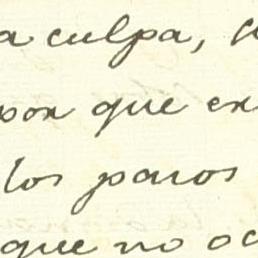 a culpa,
por que en
los pavos
que no oc